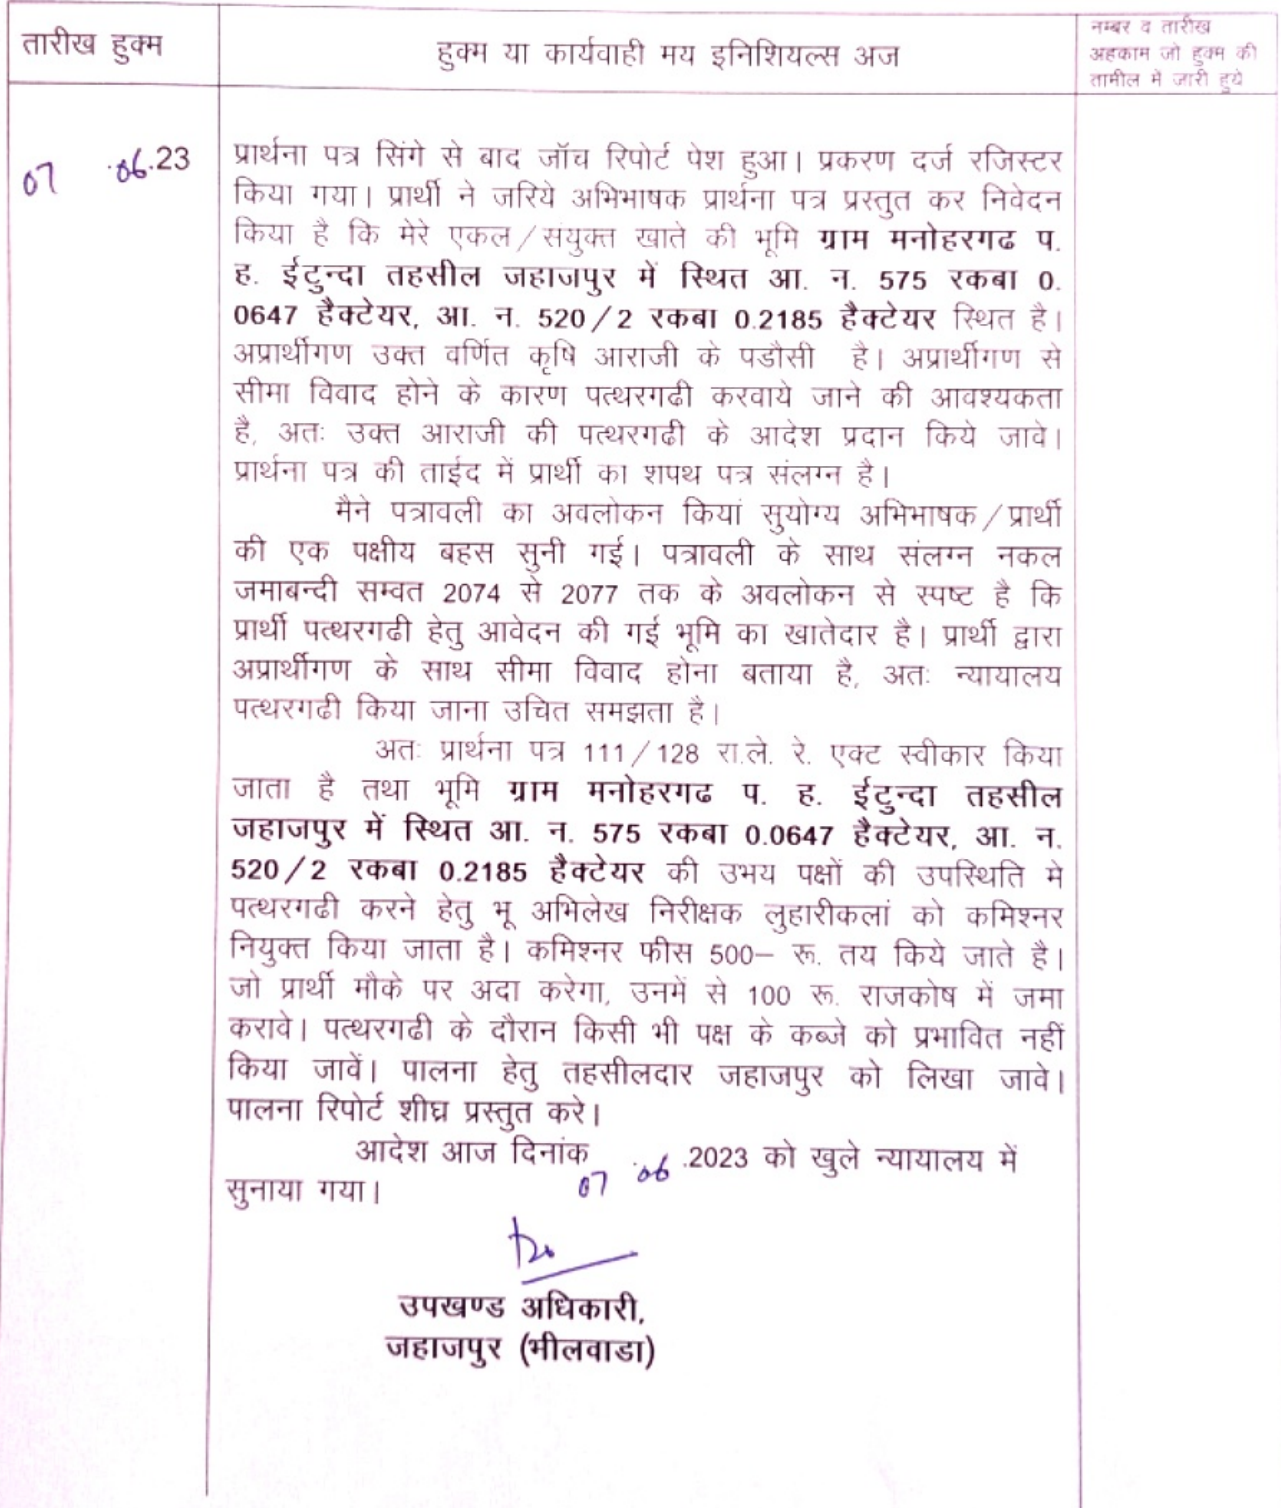 तारीख हुक्म
हुक्म या कार्यवाही मय इनिशियल्स अज
नम्बर व तारीख
अहकाम जो हुक्म की
तामील में जारी हुये
07 .06.23
प्रार्थना पत्र सिंगे से बाद जॉच रिपोर्ट पेश हुआ। प्रकरण दर्ज रजिस्टर
किया गया। प्रार्थी ने जरिये अभिभाषक प्रार्थना पत्र प्रस्तुत कर निवेदन
किया है कि मेरे एकल/संयुक्त खाते की भूमि ग्राम मनोहरगढ प.
ह. ईटुन्दा तहसील जहाजपुर में स्थित आ. न. 575 रकबा 0.
0647 हैक्टेयर, आ. न. 520/2 रकबा 0.2185 हैक्टेयर स्थित है।
अप्रार्थीगण उक्त वर्णित कृषि आराजी के पडौसी है। अप्रार्थीगण से
सीमा विवाद होने के कारण पत्थरगढी करवाये जाने की आवश्यकता
है, अतः उक्त आराजी की पत्थरगढी के आदेश प्रदान किये जावे।
प्रार्थना पत्र की ताईद में प्रार्थी का शपथ पत्र संलग्न है।
मैने पत्रावली का अवलोकन कियां सुयोग्य अभिभाषक/प्रार्थी
की एक पक्षीय बहस सुनी गई। पत्रावली के साथ संलग्न नकल
जमाबन्दी सम्वत 2074 से 2077 तक के अवलोकन से स्पष्ट है कि
प्रार्थी पत्थरगढी हेतु आवेदन की गई भूमि का खातेदार है। प्रार्थी द्वारा
अप्रार्थीगण के साथ सीमा विवाद होना बताया है, अतः न्यायालय
पत्थरगढी किया जाना उचित समझता है।
अतः प्रार्थना पत्र 111/128 रा.ले. रे. एक्ट स्वीकार किया
जाता है तथा भूमि ग्राम मनोहरगढ प. ह. ईटुन्दा तहसील
जहाजपुर में स्थित आ. न. 575 रकबा 0.0647 हैक्टेयर, आ. न.
520/2 रकबा 0.2185 हैक्टेयर की उभय पक्षों की उपस्थिति मे
पत्थरगढी करने हेतु भू अभिलेख निरीक्षक लुहारीकलां को कमिश्नर
नियुक्त किया जाता है। कमिश्नर फीस 500– रू. तय किये जाते है।
जो प्रार्थी मौके पर अदा करेगा, उनमें से 100 रू. राजकोष में जमा
करावे। पत्थरगढी के दौरान किसी भी पक्ष के कब्जे को प्रभावित नहीं
किया जावें। पालना हेतु तहसीलदार जहाजपुर को लिखा जावे।
पालना रिपोर्ट शीघ्र प्रस्तुत करे।
आदेश आज दिनांक 07 .06 .2023 को खुले न्यायालय में
सुनाया गया।
उपखण्ड अधिकारी,
जहाजपुर (भीलवाडा)